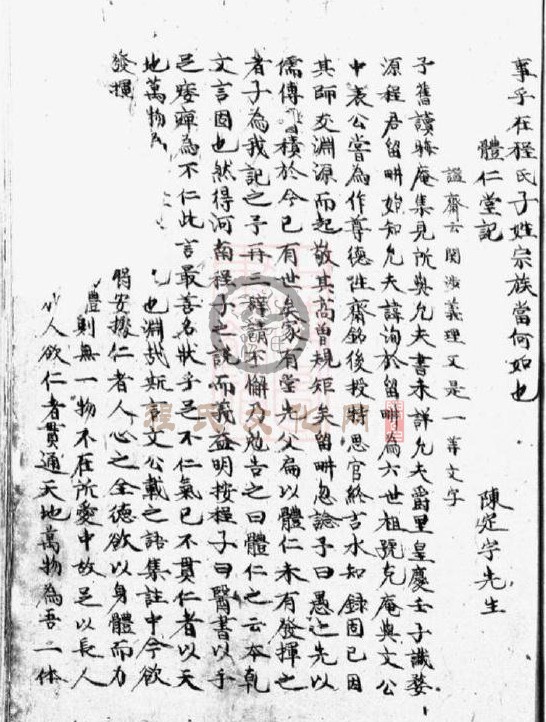 事乎在程氏子姓宗族當何如也
體仁堂記 陳定宇先生
謚齋云閎渉義理又是一等文字
予舊讀晦庵集見所與允夫書未詳允夫爵里皇慶壬子識婺
源程君留畊始知允夫諱洵於留畊為六世祖號克庵與文公
中表公嘗為作尊德性齋銘後授特恩官終吉水知錄固已因
其師友淵源而起敬其高曾規矩矣留畊忽諗予曰愚之先以
儒傳 積於今已有世矣家有堂先父扁以體仁未有發揮之
者子為我記之予再三辭請不懈乃勉告之曰體仁之云本乾
文言因也然得河南程子之說而義益明按程子曰醫書以手
足痿痺為不仁此言最善名狀乎足不仁氣已不貫仁者以天
地萬物為 也淵哉斯言文公載之語集註中今欲
發揮 曷安據仁者人心之全德欲以身體而力
體則無一物不在所愛中故足以長人
人欲仁者貫通天地萬物為吾一体
程氏文化網